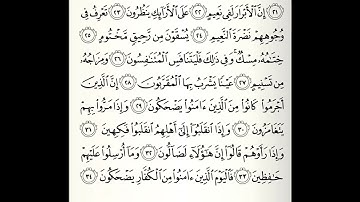 ٢١ إِنَّ ٱلْأَبْرَارَ لَفِى نَعِيمٍ ٢٢ عَلَى ٱلْأَرَآئِكِ يَنظُرُونَ ٢٣ تَعْرِفُ فِى
وُجُوهِهِمْ نَضْرَةَ ٱلنَّعِيمِ ٢٤ يُسْقَوْنَ مِن رَّحِيقٍ مَّخْتُومٍ ٢٥
خِتَٰمُهُۥ مِسْكٌ ۚ وَفِى ذَٰلِكَ فَلْيَتَنَافَسِ ٱلْمُتَنَٰفِسُونَ ٢٦ وَمِزَاجُهُۥ
مِن تَسْنِيمٍ ٢٧ عَيْنًا يَشْرَبُ بِهَا ٱلْمُقَرَّبُونَ ٢٨ إِنَّ ٱلَّذِينَ
أَجْرَمُوا۟ كَانُوا۟ مِنَ ٱلَّذِينَ ءَامَنُوا۟ يَضْحَكُونَ ٢٩ وَإِذَا مَرُّوا۟ بِهِمْ
يَتَغَامَزُونَ ٣٠ وَإِذَا ٱنقَلَبُوٓا۟ إِلَىٰٓ أَهْلِهِمُ ٱنقَلَبُوا۟ فَكِهِينَ ٣١
وَإِذَا رَأَوْهُمْ قَالُوٓا۟ إِنَّ هَٰٓؤُلَآءِ لَضَآلُّونَ ٣٢ وَمَآ أُرْسِلُوا۟ عَلَيْهِمْ
حَٰفِظِينَ ٣٣ فَٱلْيَوْمَ ٱلَّذِينَ ءَامَنُوا۟ مِنَ ٱلْكُفَّارِ يَضْحَكُونَ ٣٤